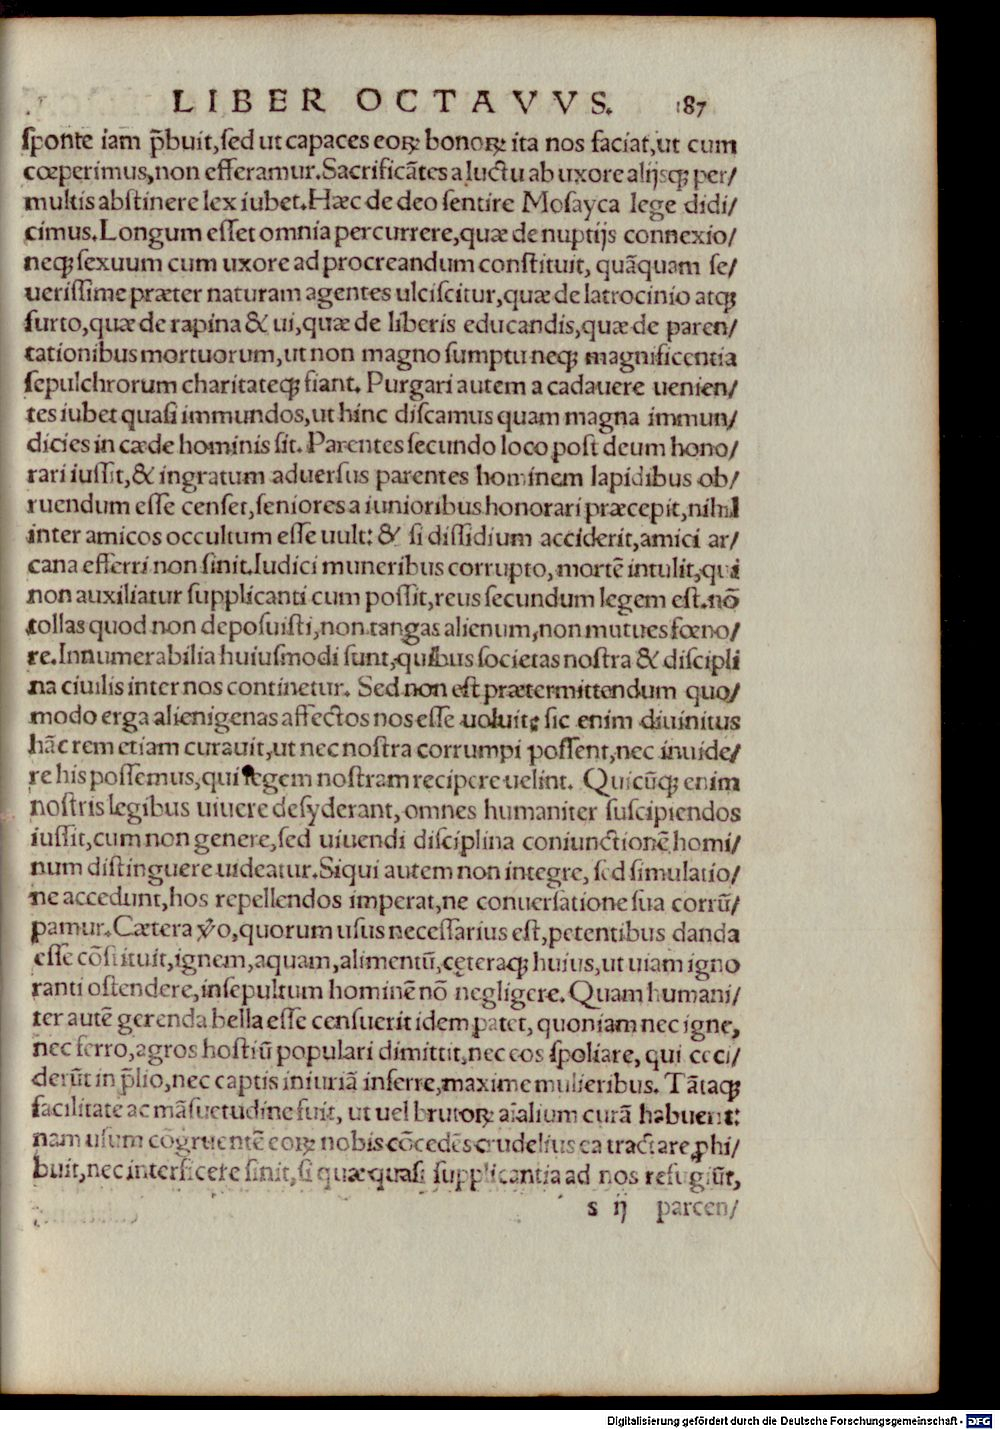 LIBER OCTAVVS. 187
sponte iam p̄buit, sed ut capaces eoꝝ bonoꝝ ita nos faciat, ut cum
cœperimus, non efferamur. Sacrificātes a luctu ab uxore alijsqꝫ per/
multis abstinere lex iubet. Hæc de deo sentire Mosayca lege didi/
cimus. Longum esset omnia percurrere, quæ de nuptijs connexio/
neqꝫ sexuum cum uxore ad procreandum constituit, quāquam se/
uerissime præter naturam agentes ulciscitur, quæ de latrocinio atqꝫ
furto, quæ de rapina & ui, quæ de liberis educandis, quæ de paren/
tationibus mortuorum, ut non magno sumptu neqꝫ magnificentia
sepulchrorum charitateqꝫ fiant. Purgari autem a cadauere uenien/
tes iubet quasi immundos, ut hinc discamus quam magna immun/
dicies in cæde hominis sit. Parentes secundo loco post deum hono/
rari iussit, & ingratum aduersus parentes hominem lapidibus ob/
ruendum esse censet, seniores a iunioribus honorari præcepit, nihil
inter amicos occultum esse uult: & si dissidium acciderit, amici ar/
cana efferri non sinit. Iudici muneribus corrupto, mortē intulit, qui
non auxiliatur supplicanti cum possit, reus secundum legem est. nō
tollas quod non deposuisti, non tangas alienum, non mutues fœno/
re. Innumerabilia huiusmodi sunt, quibus societas nostra & discipli
na ciuilis inter nos continetur. Sed non est prætermittendum quo/
modo erga alienigenas affectos nos esse uoluit: sic enim diuinitus
hāc rem etiam curauit, ut nec nostra corrumpi possent, nec inuide/
re his possemus, qui legem nostram recipere uelint. Quicūqꝫ enim
nostris legibus uiuere desyderant, omnes humaniter suscipiendos
iussit, cum non genere, sed uiuendi disciplina coniunctionē homi/
num distinguere uideatur. Siqui autem non integre, sed simulatio/
ne accedunt, hos repellendos imperat, ne conuersatione sua corrū/
pamur. Cætera v̄o, quorum usus necessarius est, petentibus danda
esse cōstituit, ignem, aquam, alimentū, cęteraqꝫ huius, ut uiam igno
ranti ostendere, insepultum hominē nō negligere. Quam humani/
ter autē gerenda bella esse censuerit idem patet, quoniam nec igne,
nec ferro, agros hostiū populari dimittit, nec eos spoliare, qui ceci/
derūt in p̄lio, nec captis iniuriā inferre, maxime mulieribus. Tātaqꝫ
facilitate ac māsuetudine fuit, ut uel brutoꝝ aīalium curā habuerit:
nam usum cōgruentē eoꝝ nobis cōcedēs crudelius ea tractare ꝓhi/
buit, nec interficere sinit, si quæ quasi supplicantia ad nos refugiūt,
s ij parcen/
Digitalisierung gefördert durch die Deutsche Forschungsgemeinschaft - DFG